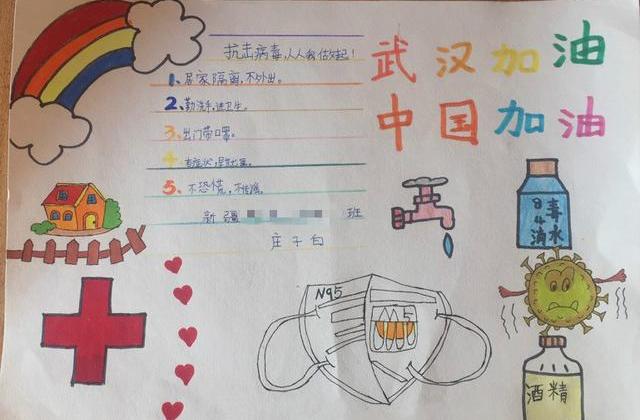 武汉加油
中国加油
抗击病毒,人人有
1、居家隔离,不外出。
2、勤洗手,进卫生。
3、出门带口罩。
4、有症状,早
5、不恐慌,不传谣。
新疆 班
庄子白
84
毒
滴水
N95
酒精